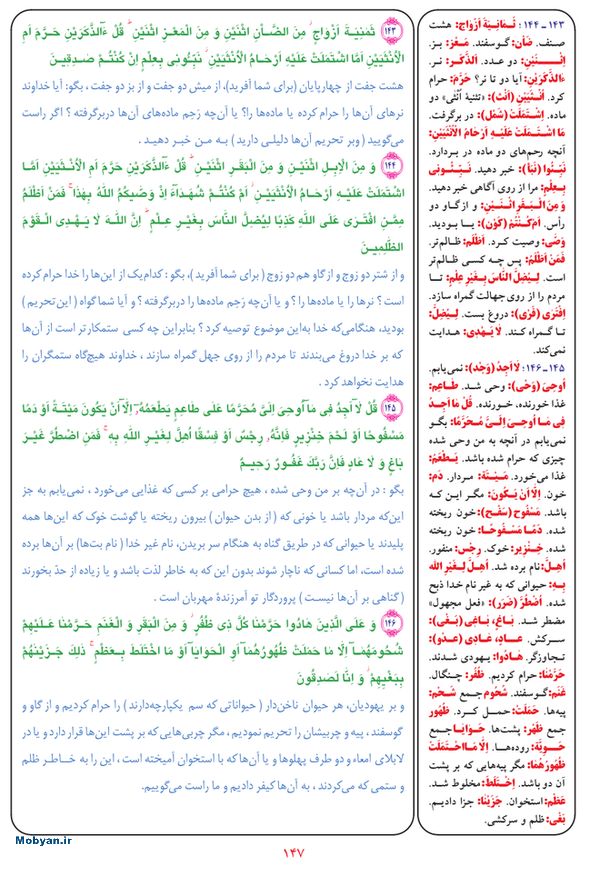 ۱۴۳ ثَمٰنِيَةَ اَزْوٰاجٍ ۖ مِنَ الضَّأْنِ اثْنَيْنِ وَ مِنَ الْمَعْزِ اثْنَيْنِ ۗ قُلْ ءٰٓالذَّكَرَيْنِ حَرَّمَ اَمِ
الْاُنْثَيَيْنِ اَمَّا اشْتَمَلَتْ عَلَيْهِ اَرْحٰامُ الْاُنْثَيَيْنِ ۖ نَبِّئُونى بِعِلْمٍ اِنْ كُنْتُمْ صٰدِقينَ
هشت جفت از چهارپایان (برای شما آفرید)، از میش دو جفت و از بز دو جفت ، بگو: آیا خداوند
نرهای آن‌ها را حرام کرده یا ماده‌ها را؟ یا آن‌چه رَحِم ماده‌های آن‌ها دربرگرفته ؟ اگر راست
می‌گویید (وبر تحریم آن‌ها دلیلی دارید) بـه مـن خبـر دهیـد .
۱۴۴ وَ مِنَ الْاِبِلِ اثْنَيْنِ وَ مِنَ الْبَقَرِ اثْنَيْنِ ۗ قُلْ ءٰٓالذَّكَرَيْنِ حَرَّمَ اَمِ الْاُنْثَيَيْنِ اَمَّا
اشْتَمَلَتْ عَلَيْهِ اَرْحٰامُ الْاُنْثَيَيْنِ ۖ اَمْ كُنْتُمْ شُهَدٰآءَ اِذْ وَصّٰيكُمُ اللّٰهُ بِهٰذٰا ۚ فَمَنْ اَظْلَمُ
مِمَّنِ افْتَرٰى عَلَى اللّٰهِ كَذِبًا لِيُضِلَّ النّٰاسَ بِغَيْرِ عِلْمٍ ۗ اِنَّ اللّٰهَ لٰا يَهْدِى الْقَوْمَ
الظّٰلِمينَ
و از شتر دو زوج و از گاو هم دو زوج ( برای شما آفرید ) ، بگو : کدام‌یک از این‌ها را خدا حرام کرده
است ؟ نرها را یا ماده‌ها را ؟ و یا آن‌چه رَحِم ماده‌ها را دربرگرفته ؟ و آیا شما گواه ( این تحریم )
بودید، هنگامی‌که خدا به‌این موضوع توصیه کرد ؟ بنابراین چه کسی ستمکارتر است از آن‌ها
که بر خدا دروغ می‌بندند تا مردم را از روی جهل گمراه سازند ، خداوند هیچ‌گاه ستمگران را
هدایت نخواهد کرد .
۱۴۵ قُلْ لٰآ اَجِدُ فى مٰآ اُوحِىَ اِلَىَّ مُحَرَّمًا عَلٰى طٰاعِمٍ يَطْعَمُهُٓ اِلّٰآ اَنْ يَكُونَ مَيْتَةً اَوْ دَمًا
مَسْفُوحًا اَوْ لَحْمَ خِنْزيرٍ فَاِنَّهُ رِجْسٌ اَوْ فِسْقًا اُهِلَّ لِغَيْرِ اللّٰهِ بِهِ ۚ فَمَنِ اضْطُرَّ غَيْرَ
بٰاغٍ وَ لٰا عٰادٍ فَاِنَّ رَبَّكَ غَفُورٌ رَحيمٌ
بگو : در آن‌چه بر من وحی شده ، هیچ حرامی بر کسی که غذایی می‌خورد ، نمی‌یابم به جز
این‌که مردار باشد یا خونی که ( از بدن حیوان ) بیرون ریخته یا گوشت خوک که این‌ها همه
پلیدند یا حیوانی که در طریق گناه به هنگام سر بریدن، نام غیر خدا ( نام بت‌ها) بر آن‌ها برده
شده است، اما کسانی که ناچار شوند بدون این که به خاطر لذت باشد و یا زیاده از حدّ بخورند
(گناهی بر آن‌ها نیست ) پروردگار تو آمرزندهٔ مهربان است .
۱۴۶ وَ عَلَى الَّذينَ هٰادُوا حَرَّمْنٰا كُلَّ ذى ظُفُرٍ ۖ وَ مِنَ الْبَقَرِ وَ الْغَنَمِ حَرَّمْنٰا عَلَيْهِمْ
شُحُومَهُمٰآ اِلّٰا مٰا حَمَلَتْ ظُهُورُهُمٰآ اَوِ الْحَوٰايٰآ اَوْ مَا اخْتَلَطَ بِعَظْمٍ ۚ ذٰلِكَ جَزَيْنٰهُمْ
بِبَغْيِهِمْ ۖ وَ اِنّٰا لَصٰدِقُونَ
و بر یهودیان، هر حیوان ناخن‌دار ( حیواناتی که سم یکپارچه‌دارند ) را حرام کردیم و از گاو و
گوسفند ، پیه و چربیشان را تحریم نمودیم ، مگر چربی‌هایی که بر پشت این‌ها قرار دارد و یا در
لابلای امعاء و دو طرف پهلوها و یا آن‌ها که با استخوان آمیخته است ، این را به خاطر ظلم
و ستمی که می‌کردند ، به آن‌ها کیفر دادیم و ما راست می‌گوییم.
۱۴۳ ـ ۱۴۴: ثَمٰانِيَةَ اَزْوٰاج: هشت
صنف. ضَأن: گوسفند. مَعْز: بز.
اِثْنَيْنِ: دو عدد. اَلذَّكَر: نر.
ءٰالذَّكَرَيْنِ: آیا دو تا نر؟ حَرَّمَ: حرام
کرد. اُنْثَيَيْن (اُنث): «تثنیهٔ اُنْثی» دو
ماده. اِشْتَمَلَتْ (شَمْل): در برگرفت.
مَا اشْتَمَلَتْ عَلَيْهِ اَرْحٰامُ الْاُنْثَيَيْنِ:
آنچه رحم‌های دو ماده در بردارد.
نَبِّئُوا (نَبَأ): خبر دهید. نَبِّئُونى
بِعِلْمٍ: مرا از روی آگاهی خبر دهید.
وَ مِنَ الْبَقَرِ اثْنَيْنِ: و از گاو دو
رأس. اَمْ كُنْتُمْ (كَوْن): یا بودید.
وَصّٰى: وصیت کرد. اَظْلَم: ظالم‌تر.
فَمَنْ اَظْلَمُ: پس چه کسی ظالم‌تر
است. لِيُضِلَّ النّٰاسَ بِغَيْرِ عِلْمٍ: تـا
مردم را از روی جهالت گمراه سازد.
اِفْتَرٰى (فَرْى): دروغ بست. لِيُضِلَّ:
تـا گمـراه کنـد. لٰا يَهْدى: هـدایت
نمی‌کند.
۱۴۵ ـ ۱۴۶: لٰا اَجِدُ (وَجْد): نمی‌یابم.
اُوحِىَ (وَحْى): وحی شد. طٰاعِم:
غذا خورنده، خورنده. قُلْ مٰا اَجِدُ
فى مٰا اُوحِىَ اِلَىَّ مُحَرَّمًا: بگو
نمی‌یابم در آنچه به من وحی شده
چیزی که حرام شده باشد. يَطْعَمُ:
غذا می‌خورد. مَيْتَة: مردار. دَم:
خون. اِلّٰا اَنْ يَكُونَ: مگر این کـه
باشد. مَسْفُوح (سَفْح): خون ریخته
شده. دَمًا مَسْفُوحًا: خون ریخته
شده. خِنْزير: خوک. رِجْس: منفور.
اُهِلَّ: نام برده شد. اُهِلَّ لِغَيْرِ اللّٰهِ
بِهِ: حیوانی که به غیر نام خدا ذبح
شده. اُضْطُرَّ (ضَرَر): «فعل مجهول»
مضطر شد. بٰاغٍ، بٰاغى (بَغْى):
سرکش. عٰادٍ، عٰادى (عَدْو):
تجاوزگر. هٰادُوا: یهودی شدند.
حَرَّمْنٰا: حرام کردیم. ظُفُر: چنگال.
غَنَم: گوسفند. شُحُوم جمع شَحْم:
پیه‌ها. حَمَلَتْ: حمـل کـرد. ظُهُور
جمع ظَهْر: پشت‌ها. حَوٰايٰا جمع
حَوِيَّة: روده‌هـا. اِلّٰا مٰا حَمَلَتْ
ظُهُورُهُمٰا: مگر پیه‌هایی که بر پشت
آن دو باشد. اِخْتَلَطَ: مخلوط شـد.
عَظْم: استخوان. جَزَيْنٰا: جزا دادیـم.
بَغْى: ظلم و سرکشی.
Mobyan.ir
۱۴۷